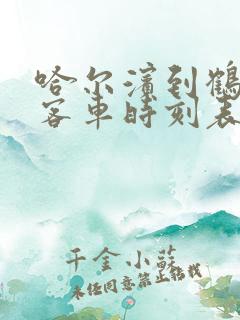 哈尔滨到鹤
客车时刻表
千金小蘇
未经同意禁止转载